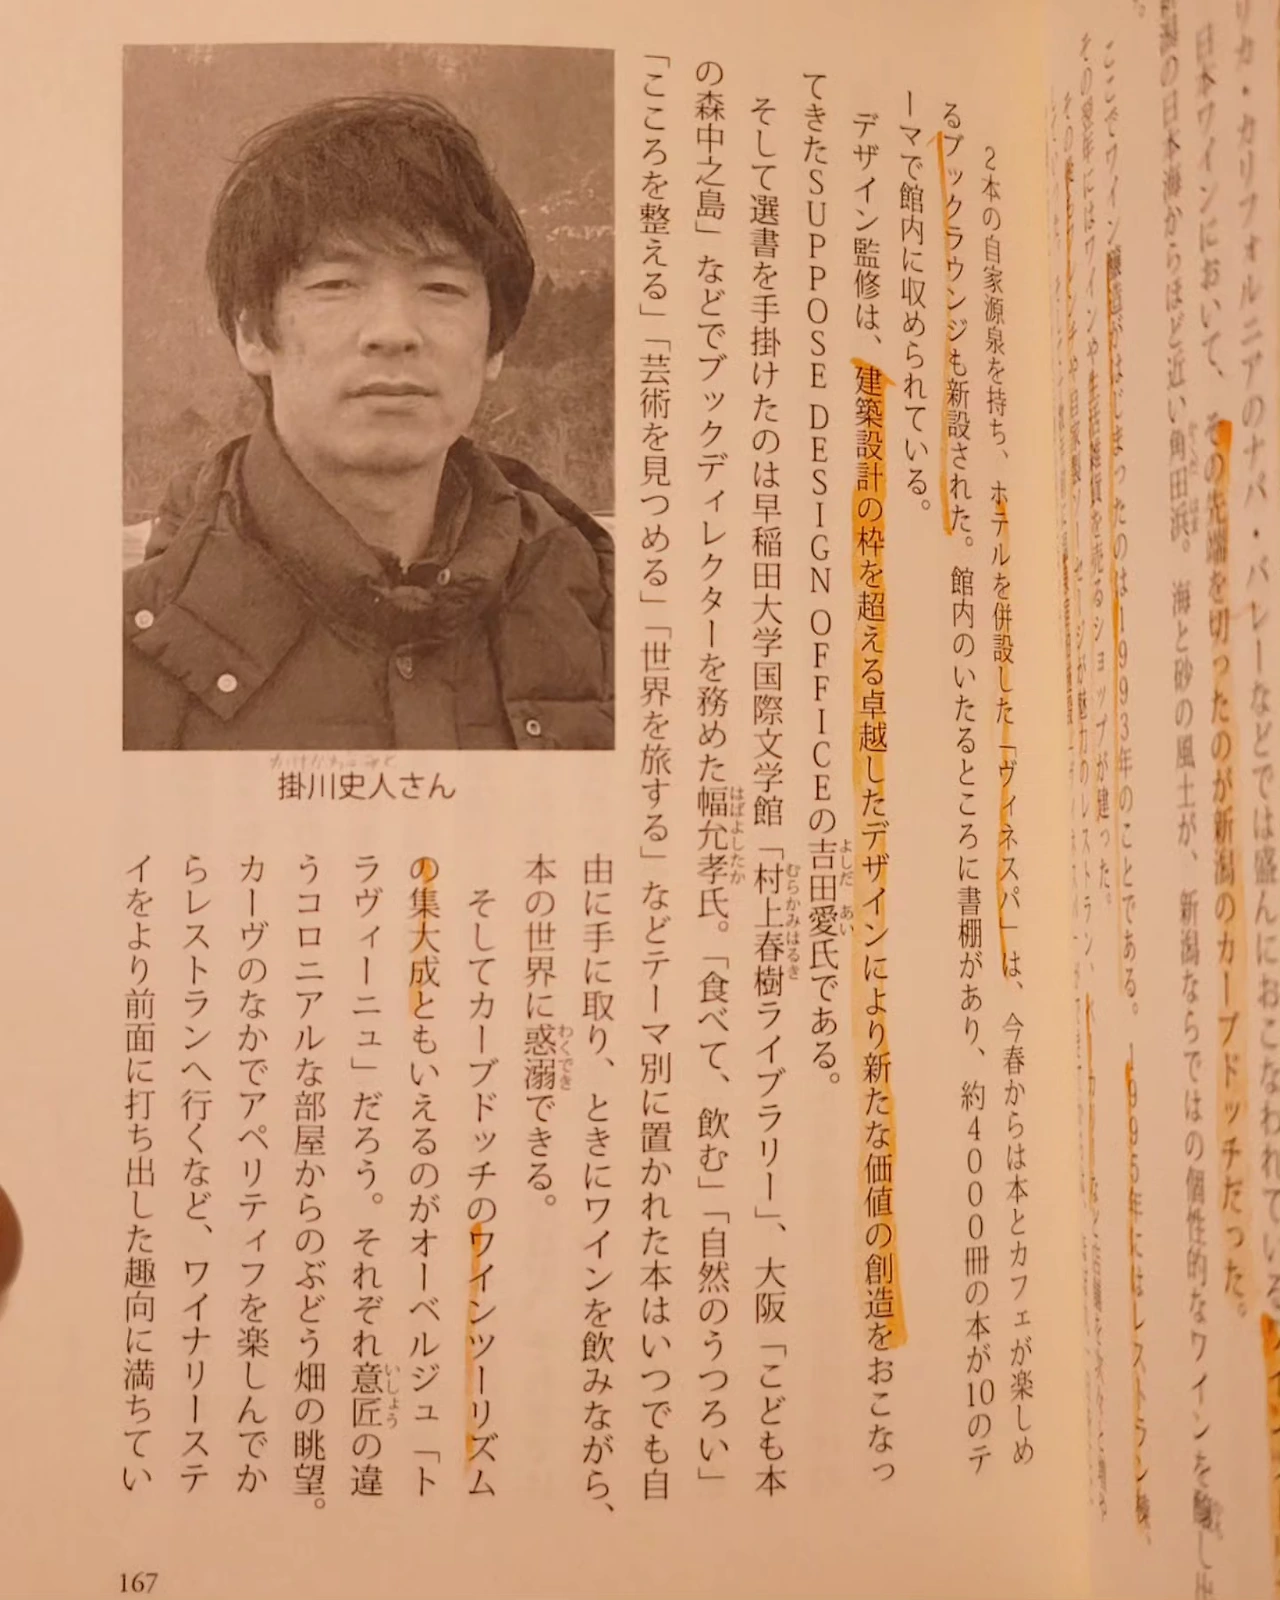 リカ・カリフォルニアのナパ・バレーなどでは盛んにおこなわれている
日本ワインにおいて、その先端を切ったのが新潟のカーブドッチだった。
の日本海からほど近い角田浜。海と砂の風土が、新潟ならではの個性的なワインを醸し出
ここでワイン醸造がはじまったのは1993年のことである。1995年にはレストラン棟、
その翌年にはワインや生活雑貨を売るショップが建った。
2本の自家源泉を持ち、ホテルを併設した「ヴィネスパ」は、今春からは本とカフェが楽しめ
るブックラウンジも新設された。館内のいたるところに書棚があり、約4000冊の本が10のテ
ーマで館内に収められている。
デザイン監修は、建築設計の枠を超える卓越したデザインにより新たな価値の創造をおこなっ
よしだ あい
てきたSUPPOSE DESIGN OFFICEの吉田愛氏である。
むらかみはるき
そして選書を手掛けたのは早稲田大学国際文学館「村上春樹ライブラリー」、大阪「こども本
はばよしたか
の森中之島」などでブックディレクターを務めた幅允孝氏。「食べて、飲む」「自然のうつろい」
「こころを整える」「芸術を見つめる」「世界を旅する」などテーマ別に置かれた本はいつでも自
由に手に取り、ときにワインを飲みながら、
わくでき
本の世界に惑溺できる。
そしてカーブドッチのワインツーリズム
の集大成ともいえるのがオーベルジュ「ト
いしょう
ラヴィーニュ」だろう。それぞれ意匠の違
うコロニアルな部屋からのぶどう畑の眺望。
カーヴのなかでアペリティフを楽しんでか
らレストランへ行くなど、ワイナリーステ
イをより前面に打ち出した趣向に満ちてい
掛川史人さん
167